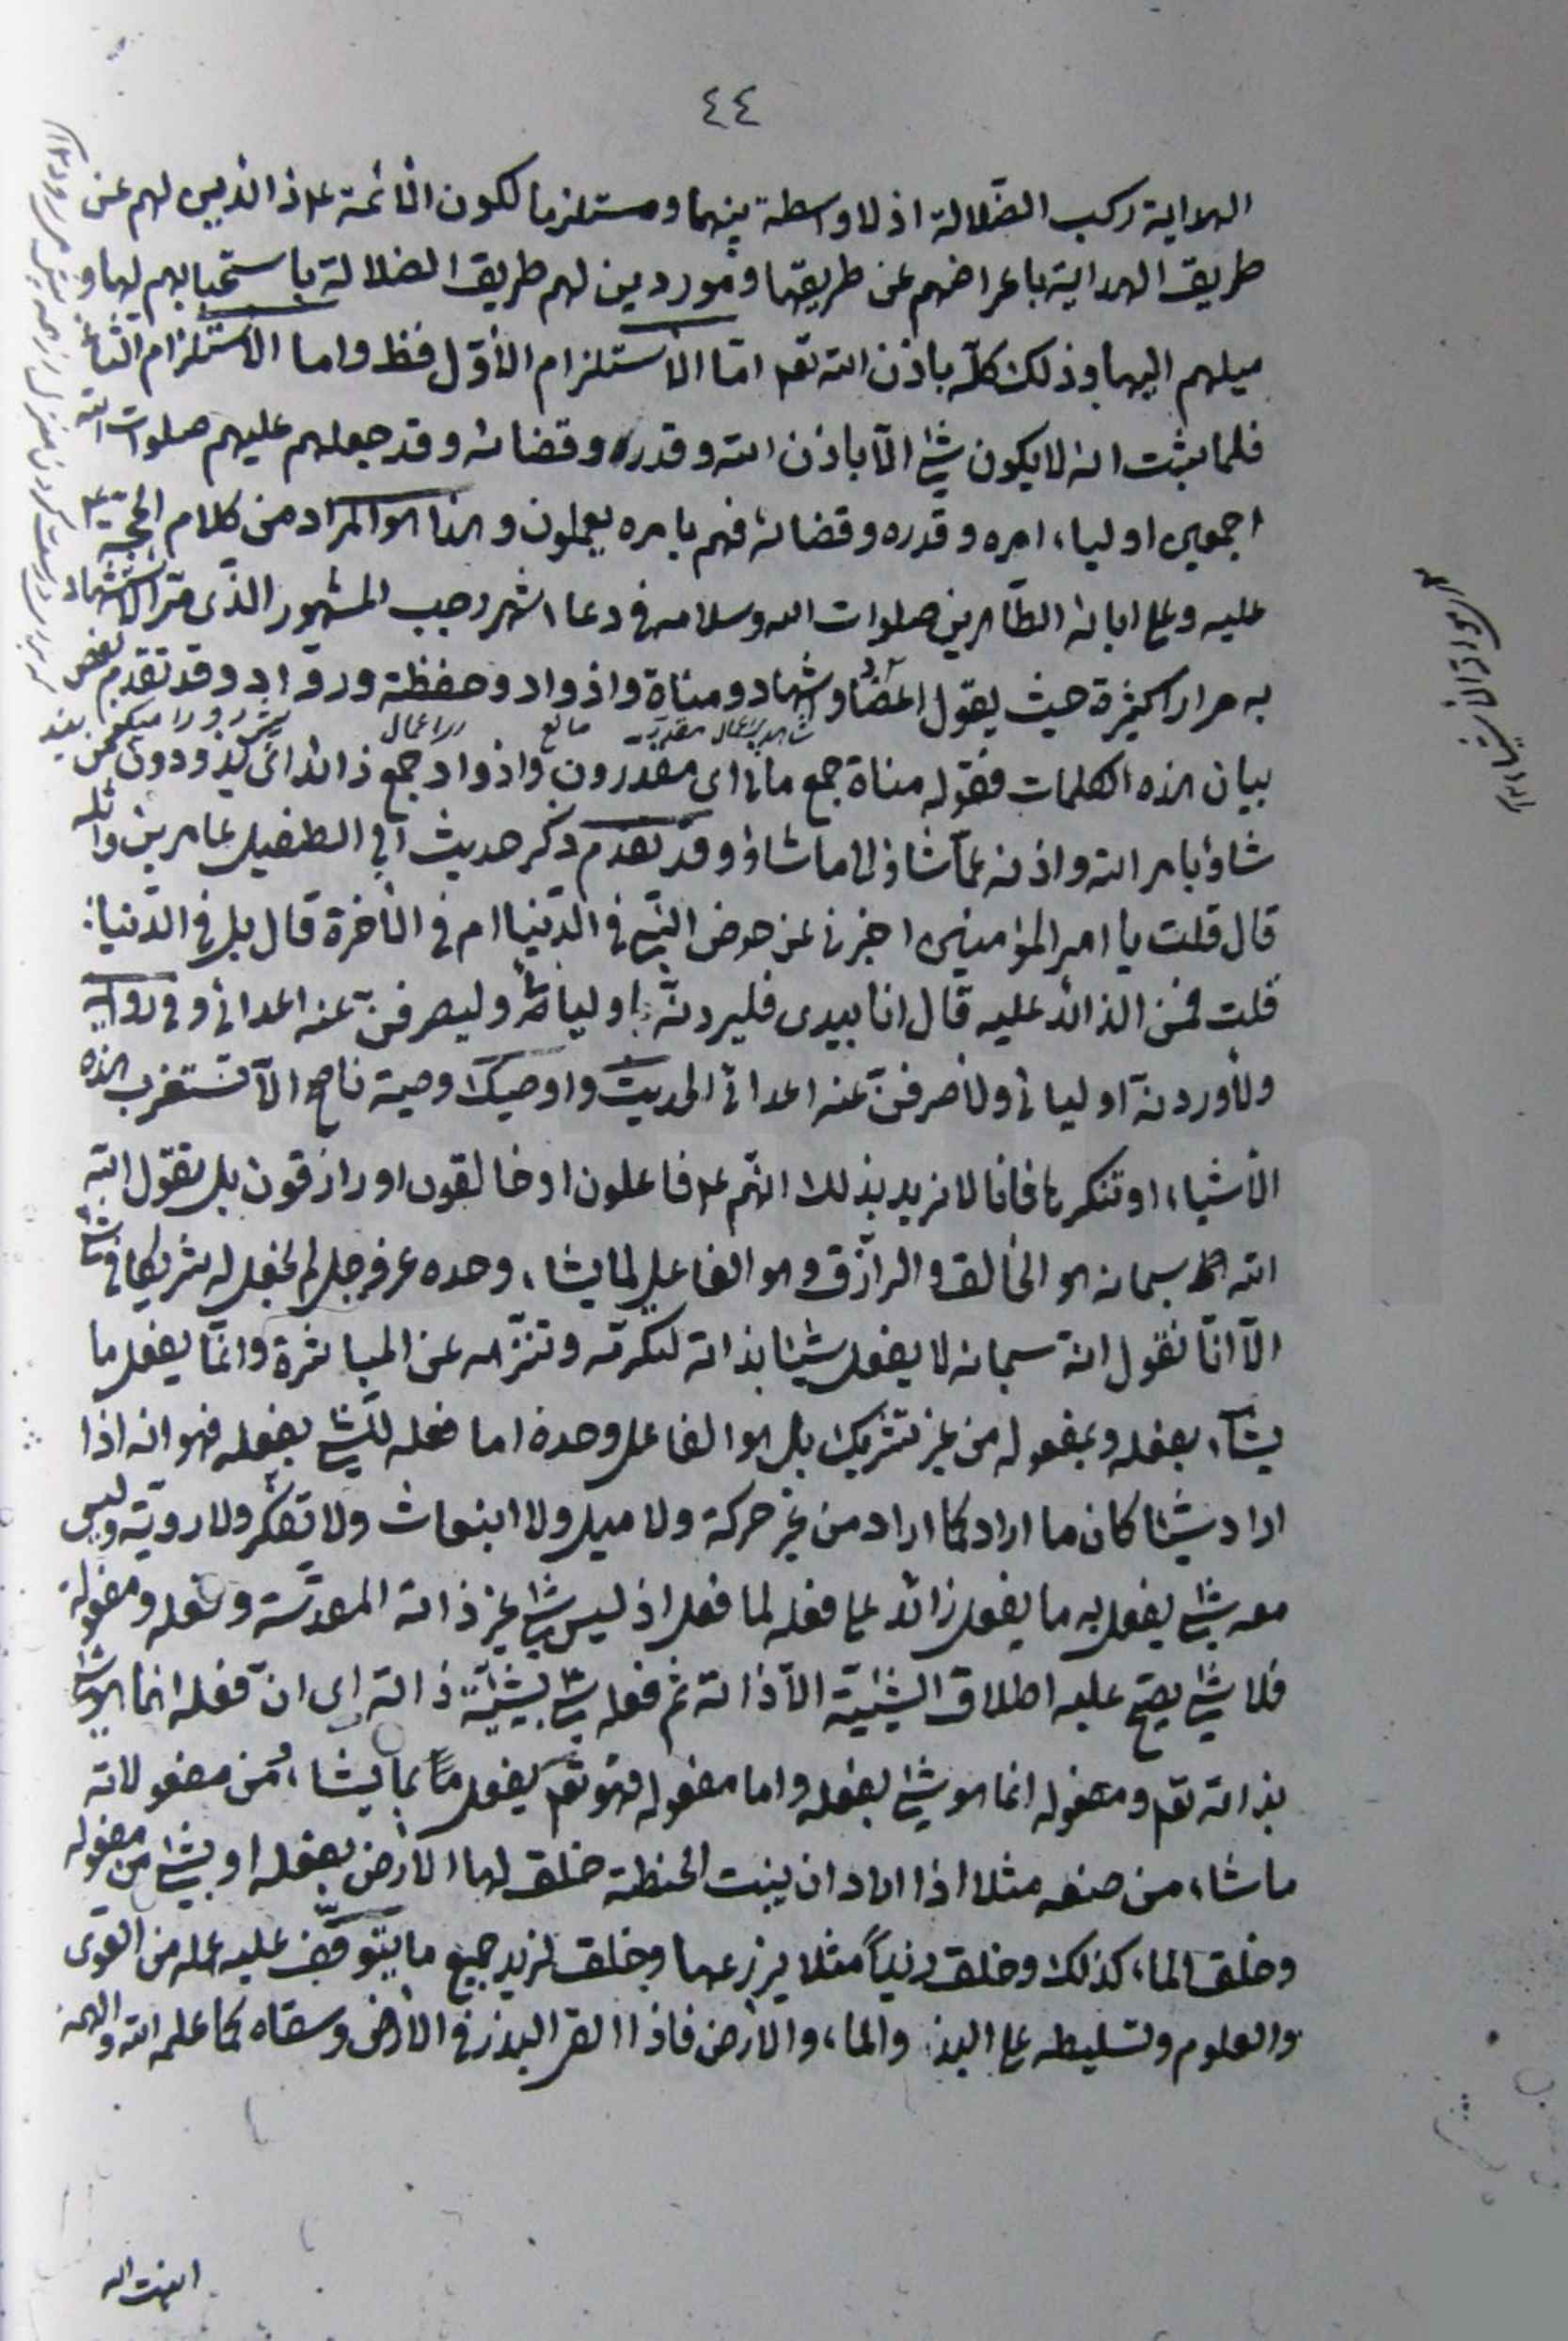 ٤٤
الهداية ركب الضلالة اذ لا واسطة بينهما ومستلزما لكون الائمة ع ذائدين لهم عن
طريق الهداية باعراضهم عن طريقها وموردين لهم طريق الضلالة باستحبابهم لها و
ميلهم اليها وذلك كله باذن الله تعـ امّا الاستلزام الأوّل فظ واما الاستلزام الثاني
فلما ثبت انه لا يكون شئ الّا باذن الله وقدره وقضائه وقد جعلهم عليهم صلوات الله
اجمعين اولياء امره وقدره وقضائه فهم بامره يعملون وهذا هو المراد من كلام الحجّة ع
عليه وعلى ابائه الطّاهرين صلوات الله وسلامه في دعاء شهر رجب المشهور الذّى مرّ الاستشهاد
به مرارا كثيرة حيث يقول اعضاد واشهاد ومناة واذواد وحفظة وروّاد وقد تقدم بعض
بيان هذه الكلمات فقوله مناة جمع مانى اى مقدّرون واذواد جمع ذائد اى يذودون من
شاؤا بامر الله واذنه عمّا شاؤا الى ما شاؤا وقد تقدّم ذكر حديث ابي الطفيل عامر بن واثلة
قال قلت يا امير المؤمنين اخبرنى عن حوض النبى في الدّنيا ام في الاخرة قال بل في الدّنيا
قلت فمن الذائد عليه قال انا بيدى فليردنّه اوليائى وليصرفنّ عنه اعدائى وفى رواية
ولأوردنّه اوليائى ولأصرفنّ عنه اعدائى الحديث واوصيك وصية ناصح الّا تستغرب هذه
الاشياء او تنكرها فانا لا نريد بذلك انهم ع فاعلون او خالقون او رازقون بل نقول الله
الله سبحانه هو الخالق والرازق وهو الفاعل لما يشاء وحده عزوجل لم نجعل له شريكا فى شئ
الّا انّا نقول انه سبحانه لا يفعل شيئا بذاته لتكرّمه وتنزّهه عن المباشرة وانّما يفعل ما
يشاء بفعله وبمفعوله من غير تشريك بل هو الفاعل وحده اما فعله للشئ بفعله فهو انه اذا
اراد شيئا كان ما اراد كما اراد من غير حركة ولا ميل ولا انبعاث ولا تفكّر ولا رويّة وليس
معه شئ يفعل به ما يفعل زائد على فعله لما فعل اذ ليس شئ غير ذاته المقدّسة وفعله ومفعوله
فلا شئ يصحّ عليه اطلاق الشيئية الّا ذاته ثم فعله شئ بشيئيّة ذاته اى انّ فعله انما هو شئ
بذاته تعـ ومفعوله انما هو شئ بفعله واما مفعوله فهو تعـ يفعل ما يشاء بما يشاء من مفعولاته
ما شاء من صنعه مثلا اذا اراد ان ينبت الحنطة خلق لها الارض بفعله او بشئ من مفعوله
وخلق الماء كذلك وخلق زيداً مثلا يزرعها وخلق لزيد جميع ما يتوقّف عليه عمله من القوى
والعلوم وتسليطه على البذر والماء والارض فاذا القى البذر في الارض وسقاه كما علمه الله والهمه
انبت الله